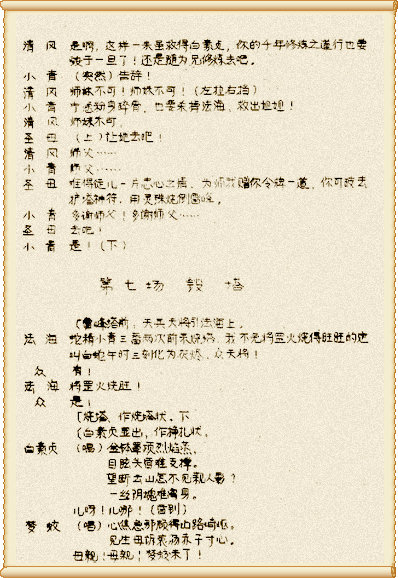 清风 是啊，这样一来虽救得白素贞，你的千年修炼之道行也要
毁于一旦了！还是随为兄修炼去吧。
小青 （突然）告辞！
清风 师妹不可！师妹不可！（左拉右挡）
小青 宁愿动身碎骨，也要来掷法海、救出姐姐！
清风 师妹不可。
圣母 （上）让她去吧！
清风 师父……
小青 师父……
圣母 难得徒儿一片忠心之情，为师就赠你令牌一道，你可破去
护塔神符，用灵珠烧倒雷峰。
小青 多谢师父！多谢师父……
圣母 去吧！
小青 是！（下）
第七场 毁塔
〔雷峰塔前，天兵天将引法海上。
法海 蛇精小青三番两次前来烧塔，我不免将罡火烧得旺旺的定
叫白蛇午时三刻化为灰烬。众天将！
众 有！
法海 将罡火烧旺！
众 是！
〔烧塔、作烧塔状。下
〔白素贞显出，作挣扎状。
白素贞 （唱）金钵罩顶烈焰蒸，
目眩头昏难支撑。
望断去山怎不见亲人影？
一丝阴魂难离身。
儿呀！儿哪！（昏倒）
梦蛟 （唱）心焦急那顾得山路崎岖，
见生母诉衷肠赤子寸心。
母亲！母亲！梦蛟来了！